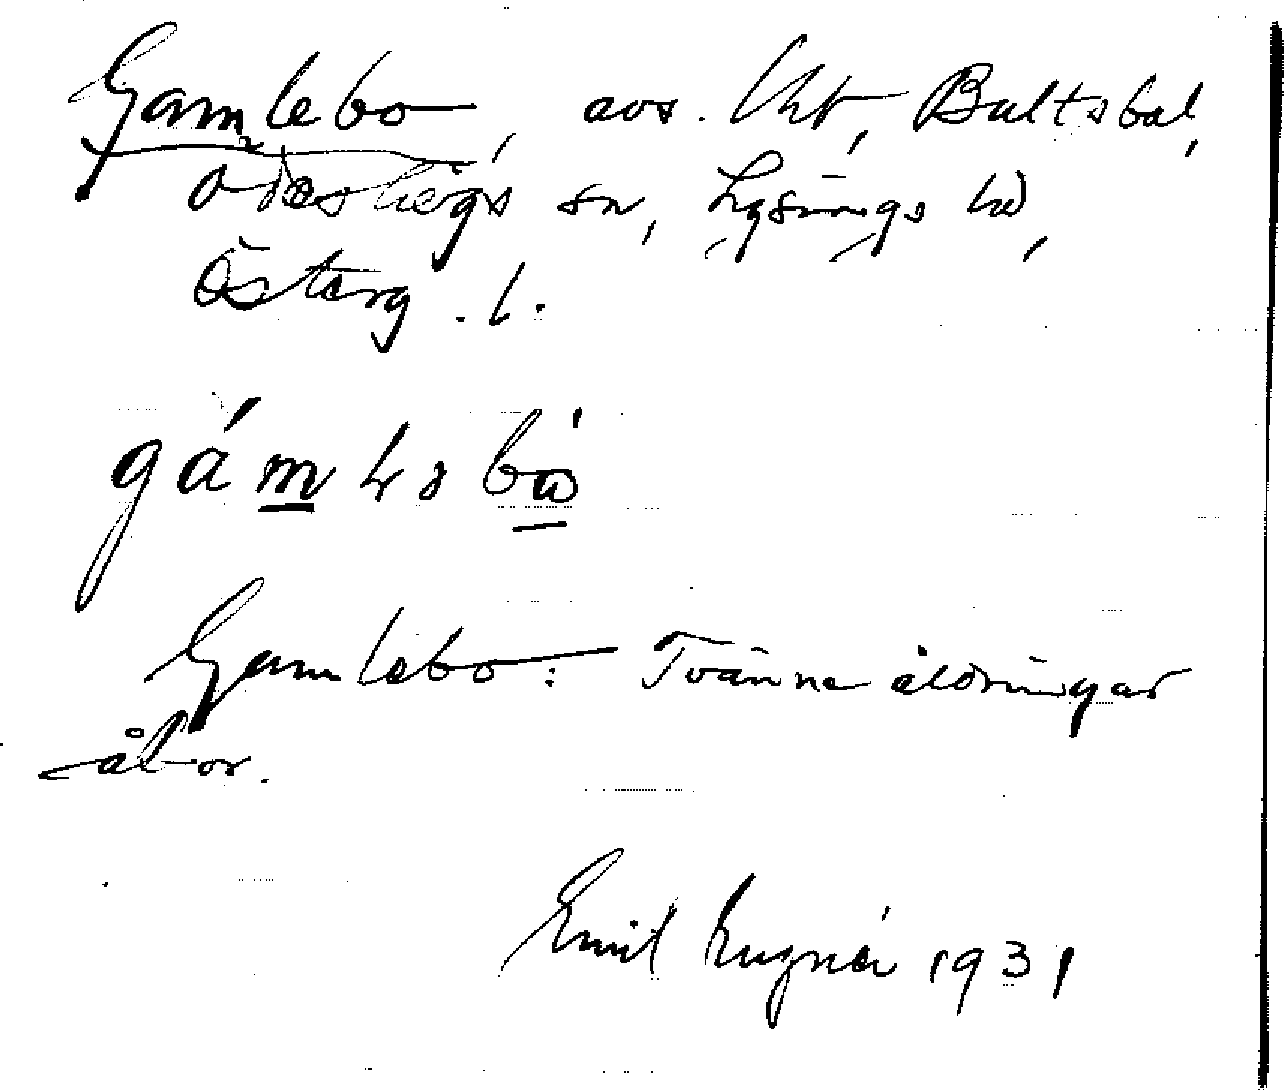 Gamlebo, avs. Utr, Bultsbol,
Ödeshögs sn, Lysings hd,
Österg. l.
Gamlebo: Tvänne åldringar
åbor.
Emil 1931